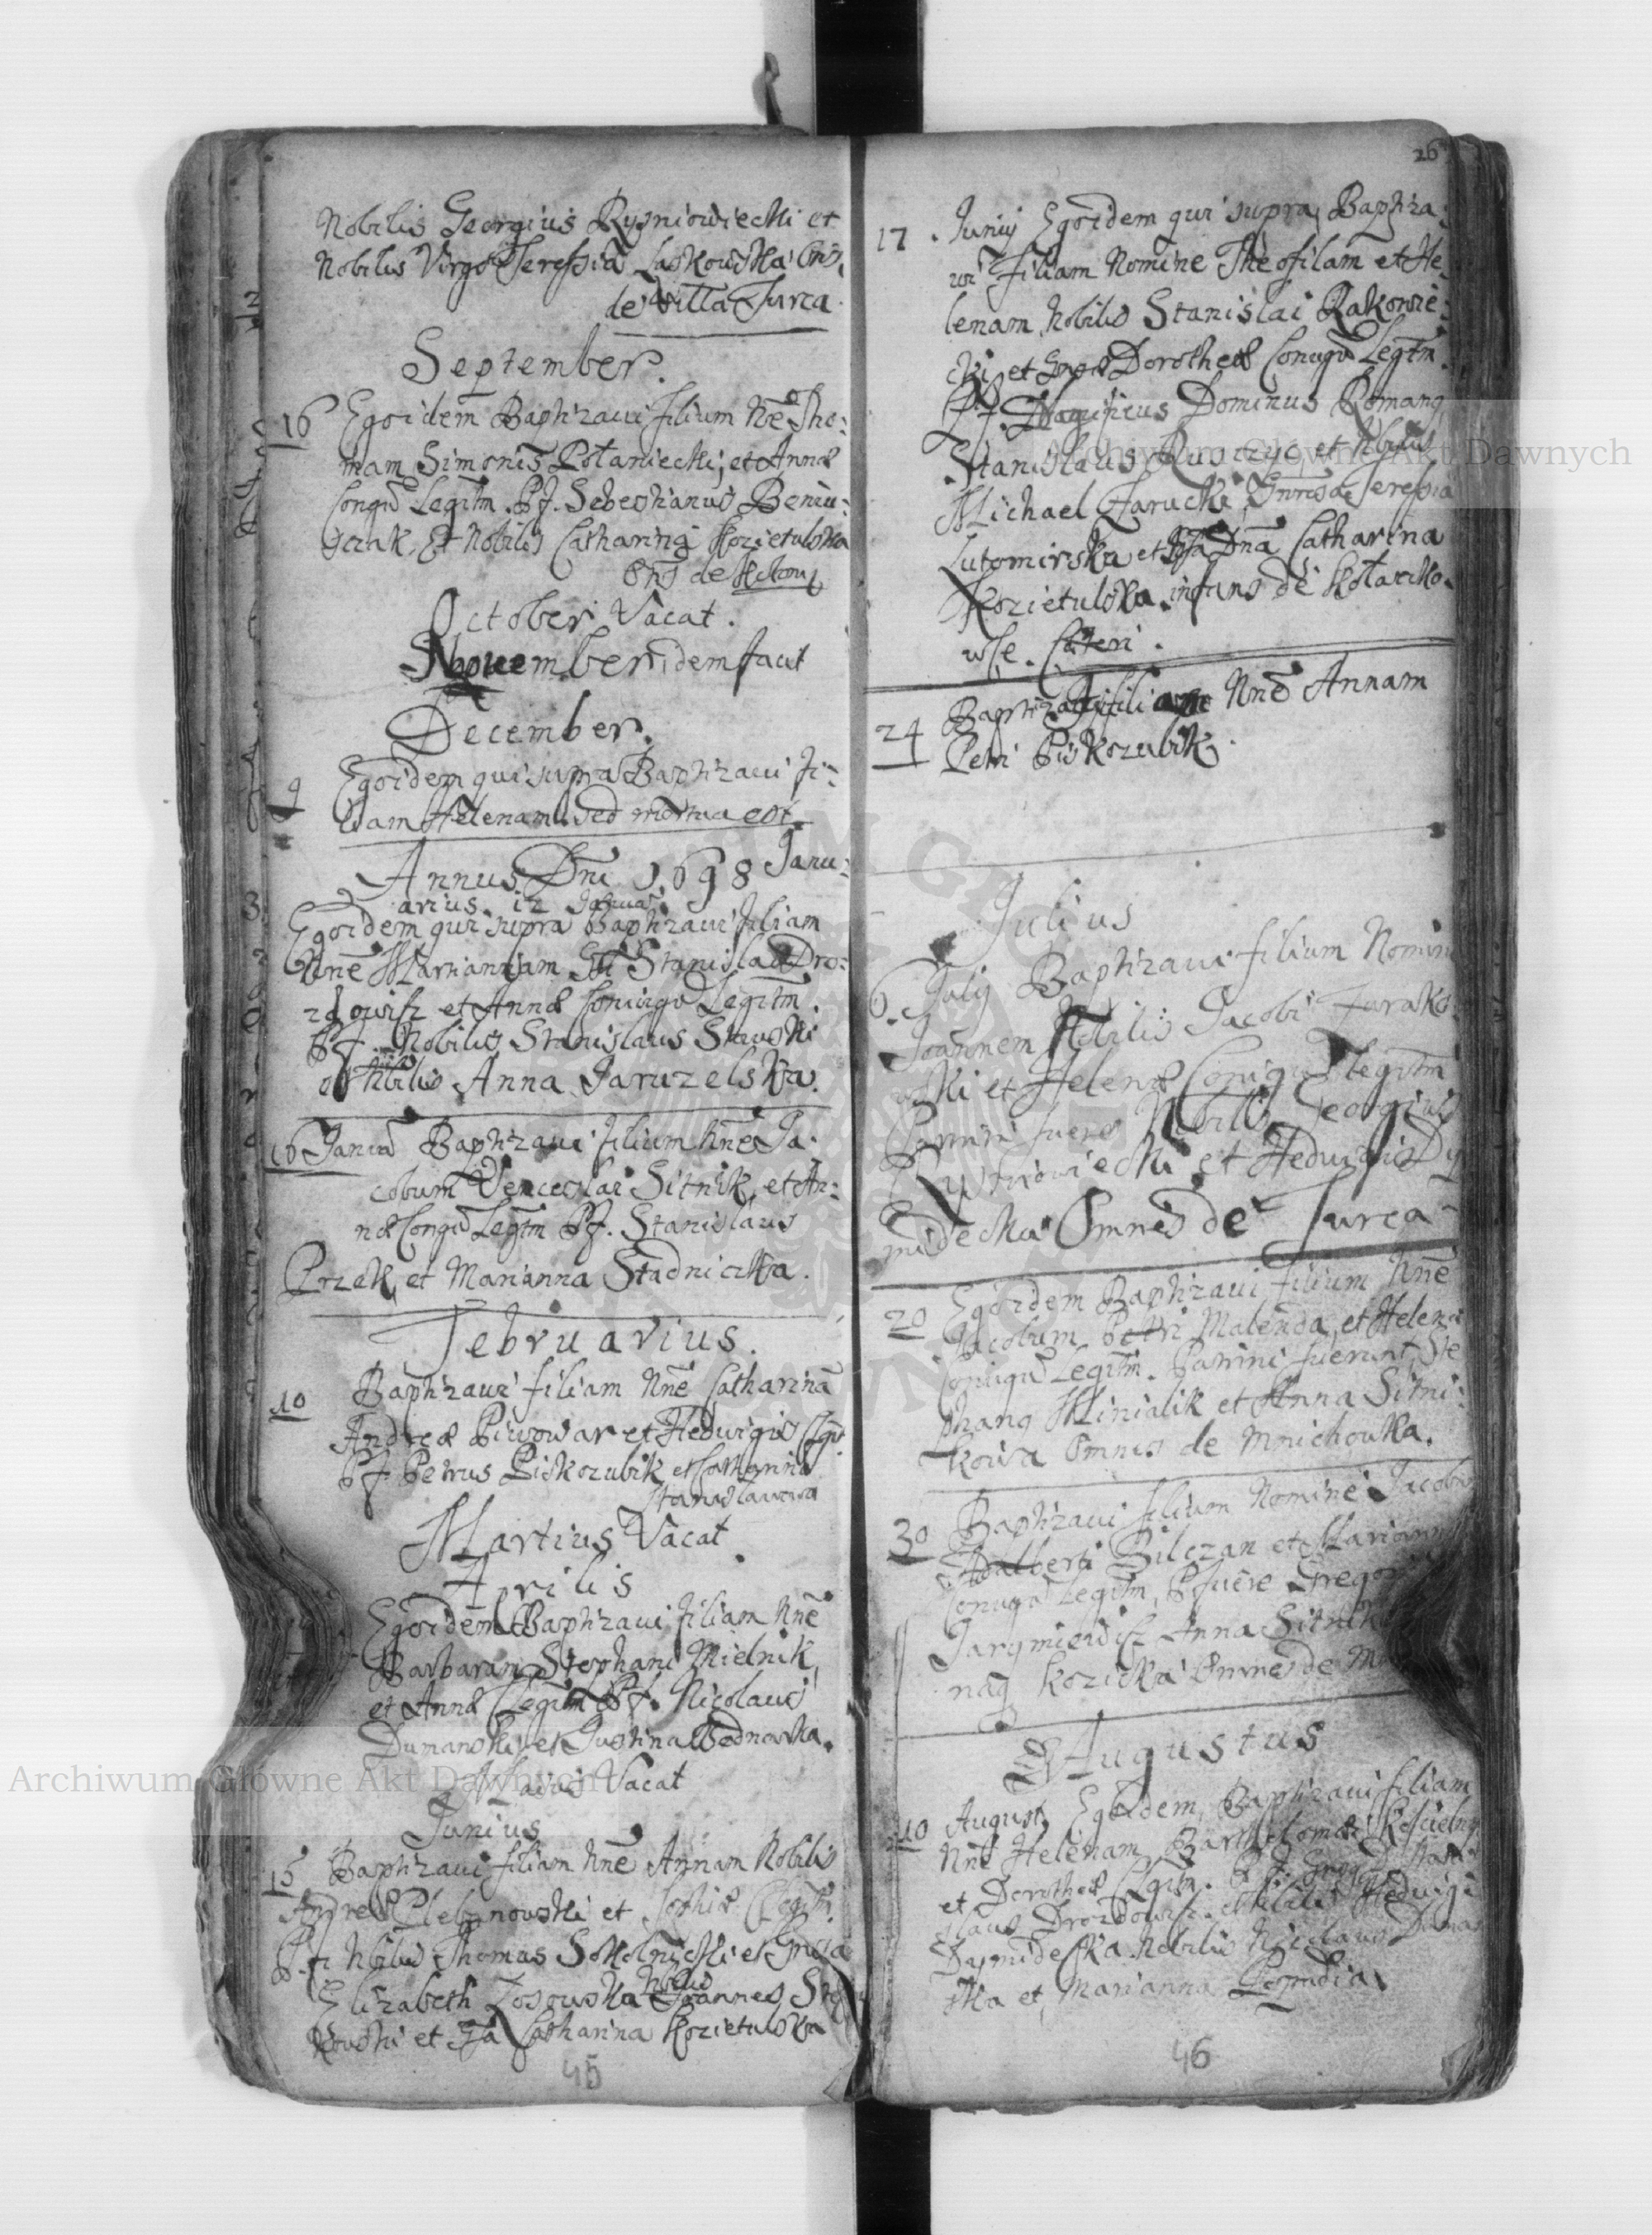 Nobilis Georgius Rysniowiecki et
Nobilis Virgo Teressia Laskowska Oms
de Villa Turca.
September.
16 Egoidem Baptizavi filium Nne Tho:
mam Simonis Połaniecki, et Annæ
Congu Legitm. PP. Sebestianus Beniu:
sczak, Et Nobilis Catharina Kozietulska
Oms de
October Vacat.
November idem facit
December.
9 Egoidem qui supra Baptizavi fi:
liam Helenam. sed mortua est.
Annus Dni 1698 Janu:
arius. 12 Januar
Egoidem qui supra Baptizavi filiam
Nne Mariannam Gsi Stanislai Dro:
zdowisz et Annæ Coniugu Legitm.
PP. Nobilis Stanislaus Stawski
et Nobilis Anna Jaruzelska.
16 Januar Baptizavi filium Nne Ja:
cobum Venceslai Sitnik, et An:
næ Congu Legtm PP. Stanislaus
Przek, et Marianna Stadniczka.
Februarius.
10 Baptizavi filiam Nne Catharina
Andreæ Piwowar et Hedwigis Cgu.
PP. Petrus Piskozubik et Catharina
Stanislawowa
Martius Vacat
Aprilis
Egoidem Baptizavi filiam Nne
Barbaram Stephani Mielnik,
et Annæ CLegitm PP. Nicolaus
Dumanski, et Justina Bednarka.
Maius Vacat
Junius
15 Baptizavi filiam Nne Annam Nobilis
Andreæ Plebanowski et Sophiæ CLegitm.
P.P. Nbilis Thomas Sokolnicki et Gnosa
Elizabeth Zosowska Nobilis Joannes
et Gsa Catharina Kozietulska
45
26
17. Junij Egoidem qui supra Baptiza:
vi Filiam Nomine Theofilam et He:
lenam Nobilis Stanislai Rakowie:
cki et Gnosæ Dorotheæ Coniugu Legitm.
PP. Magnificus Dominus Romanus
Stanislaus Rusczyc, et Nobilis
Michael Zarucki, Gnrosa Teressia
Lutomirska et Gsa Dna Catharina
Kozietulska. infans de Kotarcko:
wse. Cæteri.
24 Baptizavi filiam Nne Annam
Petri Piskozubik.
Julius
6. Julij Baptizavi filium Nomin
Joannem Nobilis Jacobi Turako:
wski et Helenæ Coniugu Legitm
Patrini fuere Nobilis Georgius
Rysniowiecki et Hedwigis Dy
midecka Omnes de Turca
20 Egoidem Baptizavi filium Nne
Jacobum Petri Malenda, et Helenæ
Coniugu Legitm. Patrini fuerunt Ste
phanus Minialik et Anna Sitni:
kowa Omnes de Mnichowka.
30 Baptizavi filium Nomine Jacobu
Adalberti Bilczan et Mariannæ
Coniugu Legitm, P fuere Gregori
Jarymiewisz Anna Sitnik
Kozicka Omnes de M
Augustus
10 August Egoidem Baptizavi filiam
Nne Helenam Bartholomæi Koscielny
et Dorotheæ CLgitm. P.P. Gnosus Stani
slaus Drozdowisz. et Nobilis Hedwigi
Dajmideska. Nobilis Nicolaus Duma
ska et Marianna
46
Archiwum Główne Akt Dawnych
Archiwum Główne Akt Dawnych